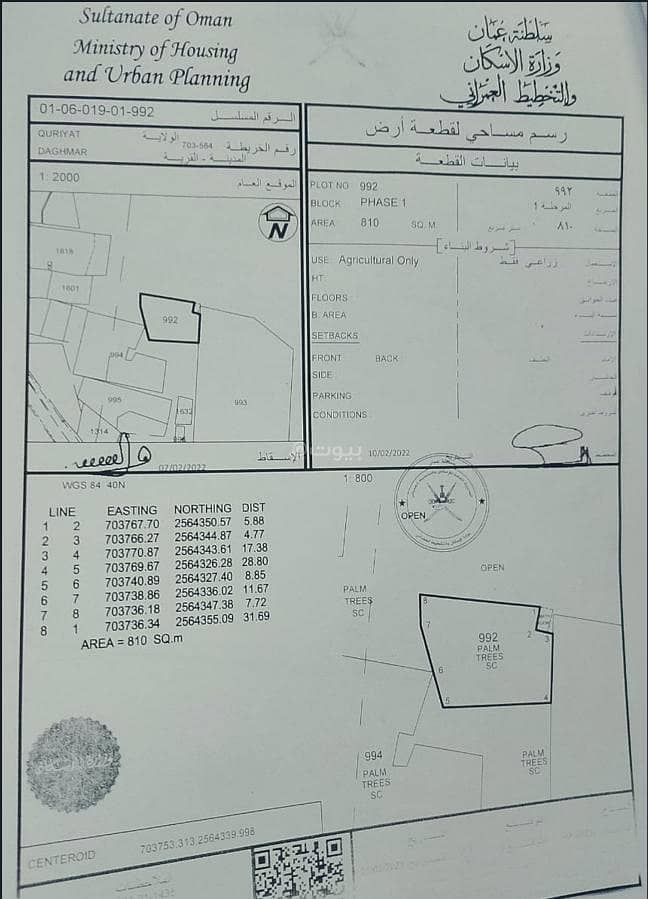 Sultanate of Oman
Ministry of Housing
and Urban Planning
سلطنة عمان
وزارة الإسكان
والتخطيط العمراني
01-06-019-01-992 الرقم المسلسل
QURIYAT الولاية
DAGHMAR المدينة - القرية
703-564 رقم الخريطة
1: 2000 الموقع العام
N
1618
1601
992
994
995
993
1632
1314
07/02/2022 الإسقاط
رسم مساحي لقطعة أرض
بيانات القطعة
PLOT NO 992 ٩٩٢
BLOCK PHASE 1 المرحلة 1
AREA: 810 SQ. M. متر مربع ٨١٠
شروط البناء
USE: Agricultural Only زراعي فقط
HT
FLOORS
B. AREA
SETBACKS
FRONT BACK
SIDE
PARKING
CONDITIONS
10/02/2022
بيوت
WGS 84 40N
LINE EASTING NORTHING DIST
1 2 703767.70 2564350.57 5.88
2 3 703766.27 2564344.87 4.77
3 4 703770.87 2564343.61 17.38
4 5 703769.67 2564326.28 28.80
5 6 703740.89 2564327.40 8.85
6 7 703738.86 2564336.02 11.67
7 8 703736.18 2564347.38 7.72
8 1 703736.34 2564355.09 31.69
AREA = 810 SQ.m
1: 800
OPEN
OPEN
PALM
TREES
SC
8
1
7
2
3
992
PALM
TREES
SC
6
5
4
994
PALM
TREES
SC
PALM
TREES
SC
CENTEROID 703753.313,2564339.998
الملاحظات